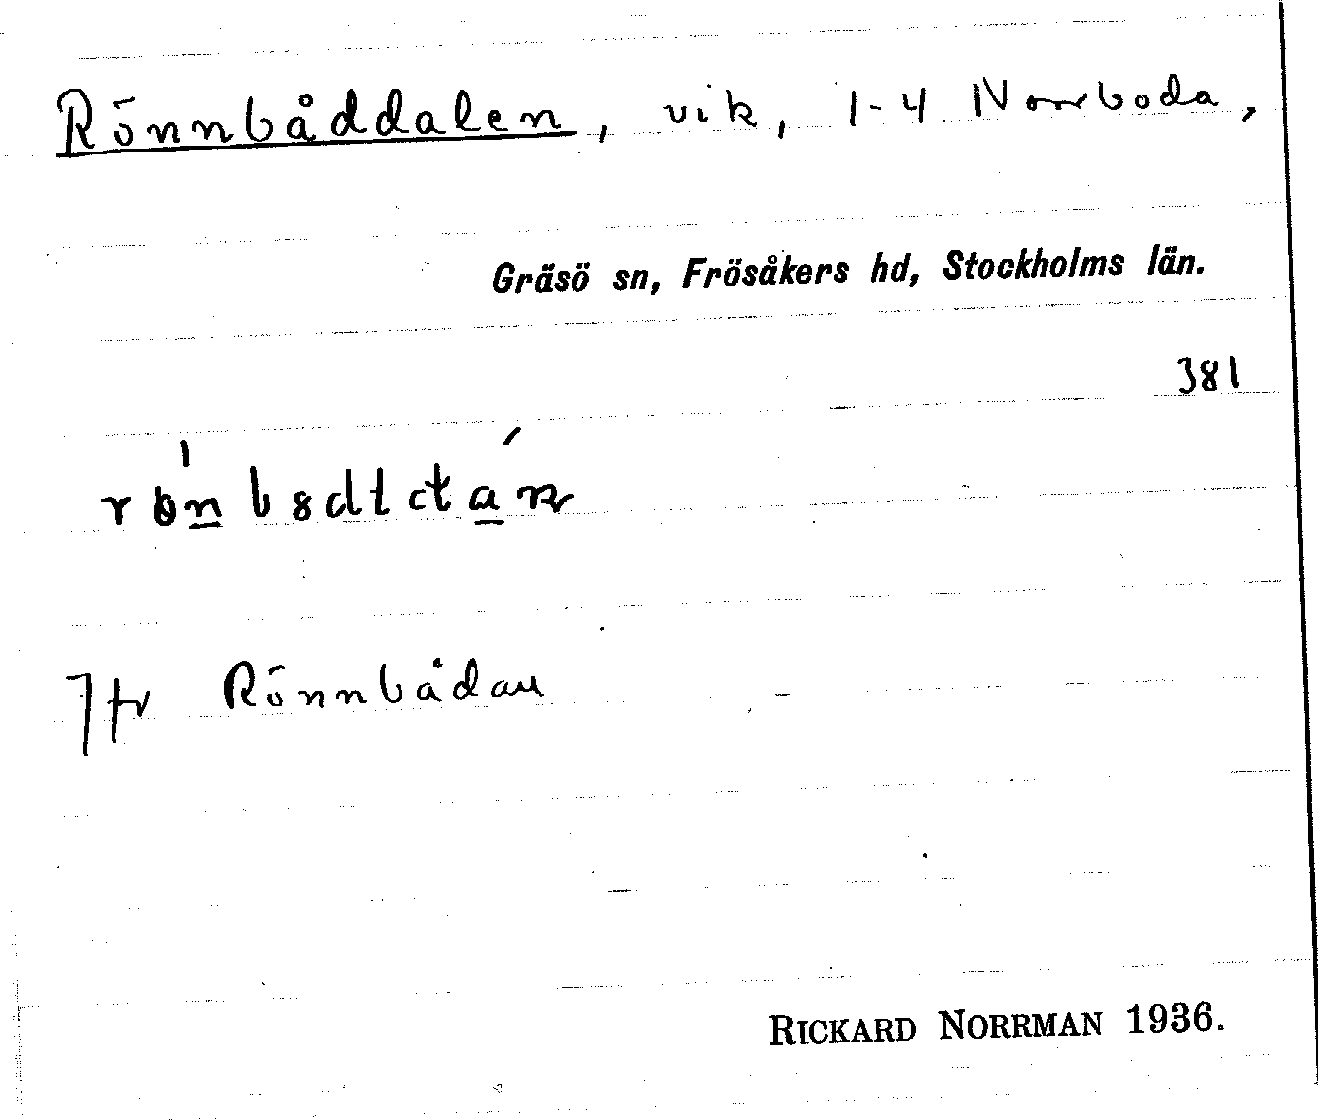 Rönnbåddalen, vik, 1-4 Norrboda,
Gräsö sn, Frösåkers hd, Stockholms län.
381
Jfr Rönnbådan
RICKARD NORRMAN 1936.